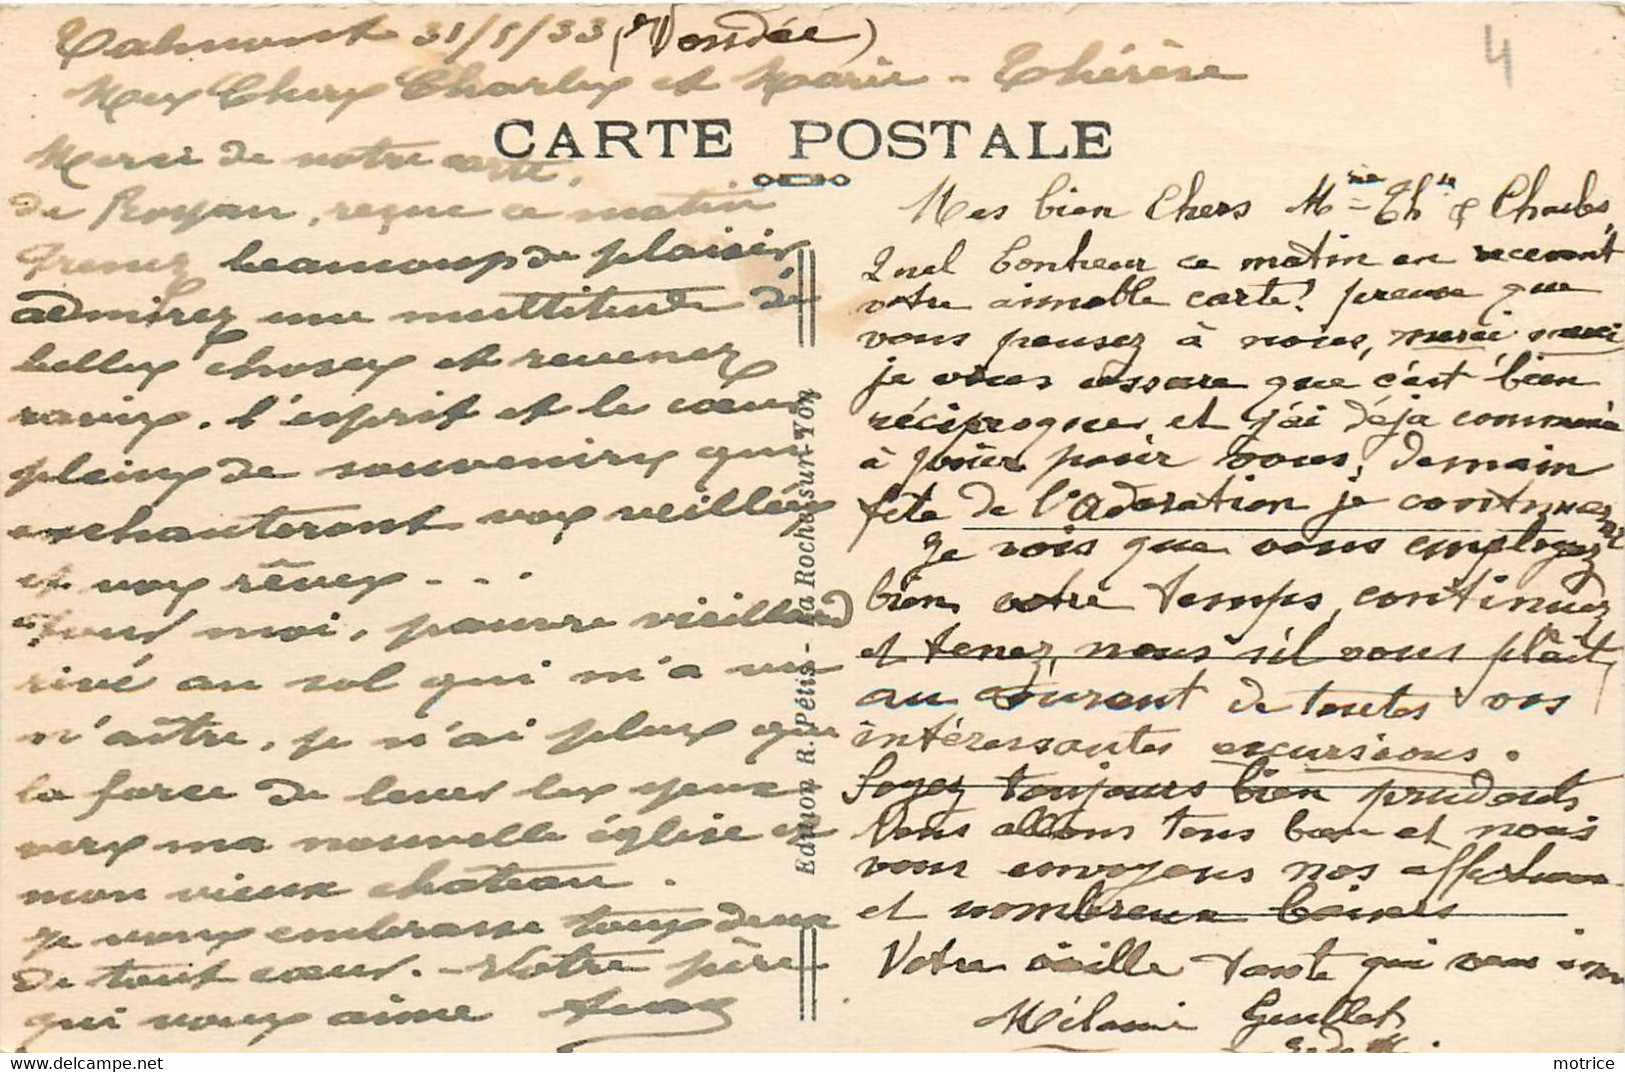 Talmont 31/5/33 (Vendée)
4
Mes Chers Charles et Marie-Thérèse
CARTE POSTALE
Merci de votre carte
de Royan, reçue ce matin
Prenez beaucoup de plaisir
admirez une multitude de
belles choses et revenez
ravis, l'esprit et le cœur
pleins de souvenirs qui
enchanteront vos veillées
et vos rêves - . .
Pour moi, pauvre vieillard
rivé au sol qui m'a vu
n'aître, je n'ai plus que
la force de lever les yeux
vers ma nouvelle église et
mon vieux chateau.
Je vous embrasse tous deux
de tout cœur. - Votre père
qui vous aime
Edition R. Pétis - La Roche-sur-Yon
Mes bien Chers Mie Thse & Charles,
Quel bonheur ce matin en recevant
votre aimable carte! preuve que
vous pensez à nous, merci merci
je vous assure que c'est bien
réciproque et j'ai déja commencé
à prier pour vous, demain
fête de l'adoration je continuerai
Je vois que vous employez
bien votre temps, continuez
et tenez, nous s'il vous plaît,
au courant de toutes vos
intéressantes excursions.
Soyez toujours bien prudents
Nous allons tous bien et nous
vous envoyons nos affectueux
et nombreux baisers
Votre vieille tante qui vous aime
Mélanie Guillet
motrice